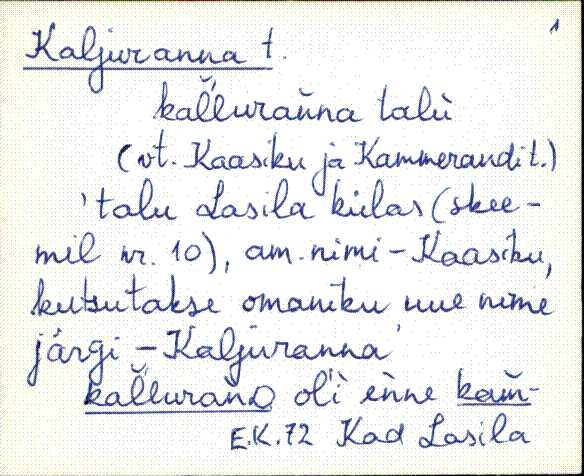 1
Kaljuranna t.
kal̆luraňna talù
(vt. Kaasiku ja Kammerandi t.)
'talu Lasila külas (skee-
mil nr. 10), am. nimi - Kaasiku,
kutsutakse omaniku uue nime
järgi - Kaljuranna'
kal̆luraňna ol'ì eǹne kam̆-
E.K. 72 Kad Lasila